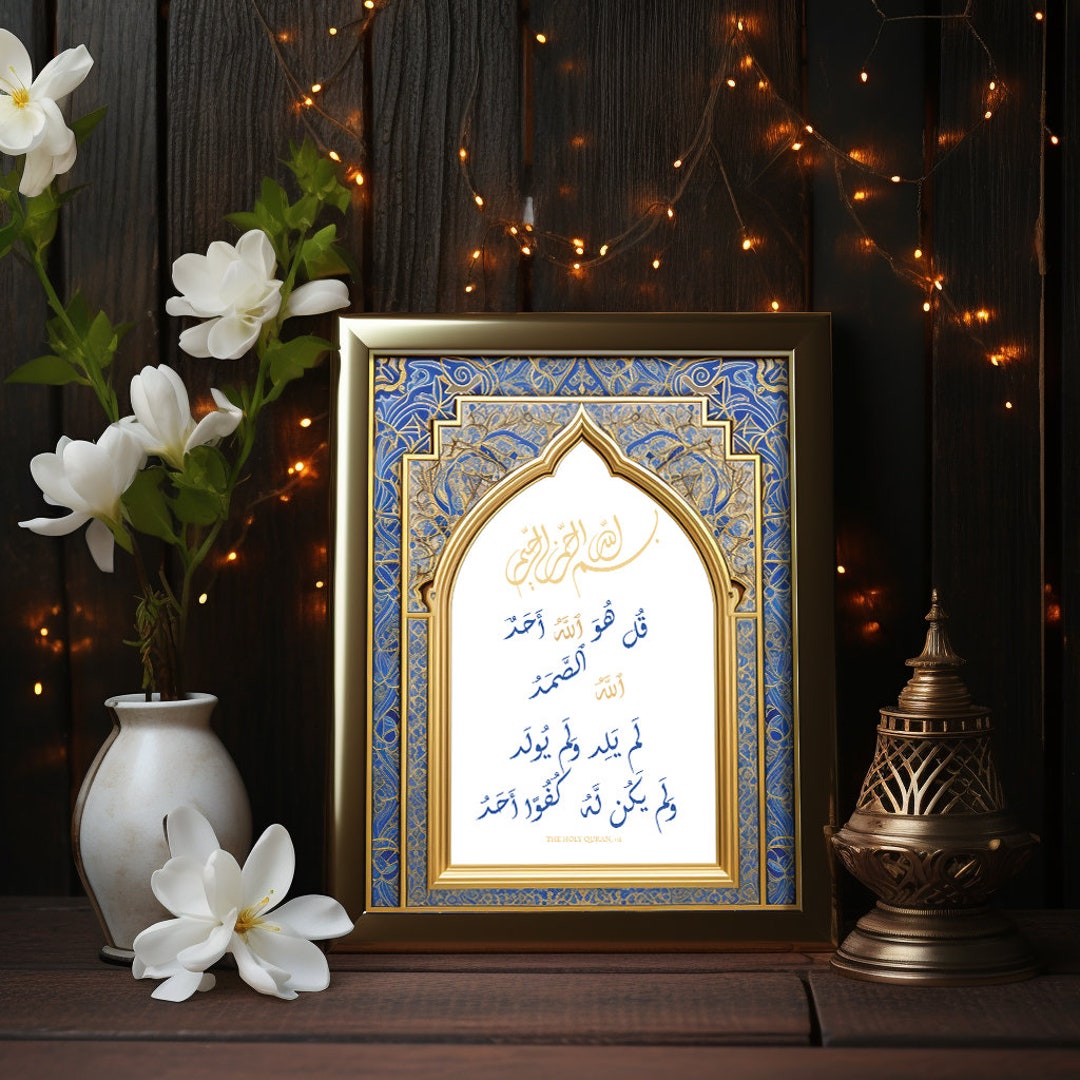 بسم الله الرحمن الرحيم
قُل هُوَ ٱللَّهُ أَحَدٌ
ٱللَّهُ ٱلصَّمَدُ
لَم يَلِد وَلَم يُولَد
وَلَم يَكُن لَّهُ كُفُوًا أَحَدٌ
THE HOLY QURAN,